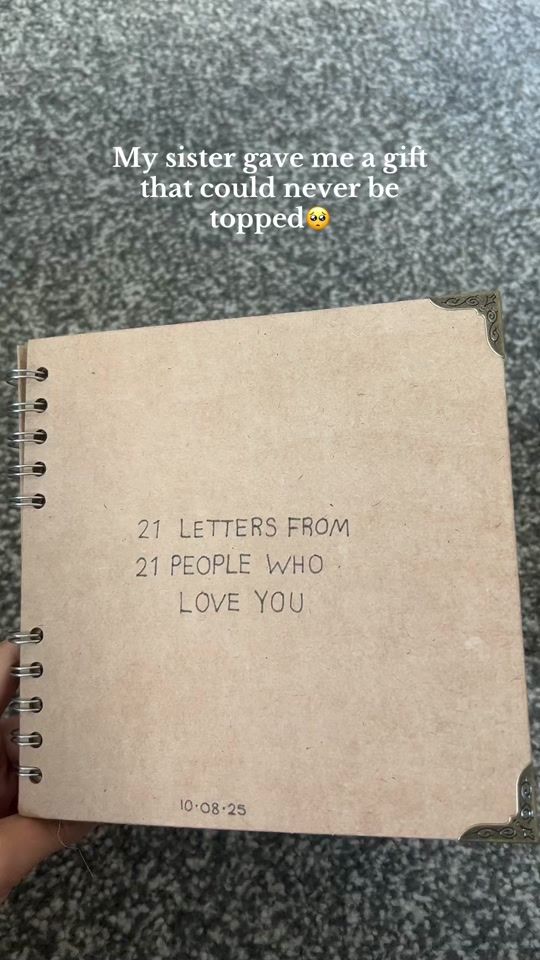 My sister gave me a gift
that could never be
topped🥺
21 LETTERS FROM
21 PEOPLE WHO
LOVE YOU
10·08·25